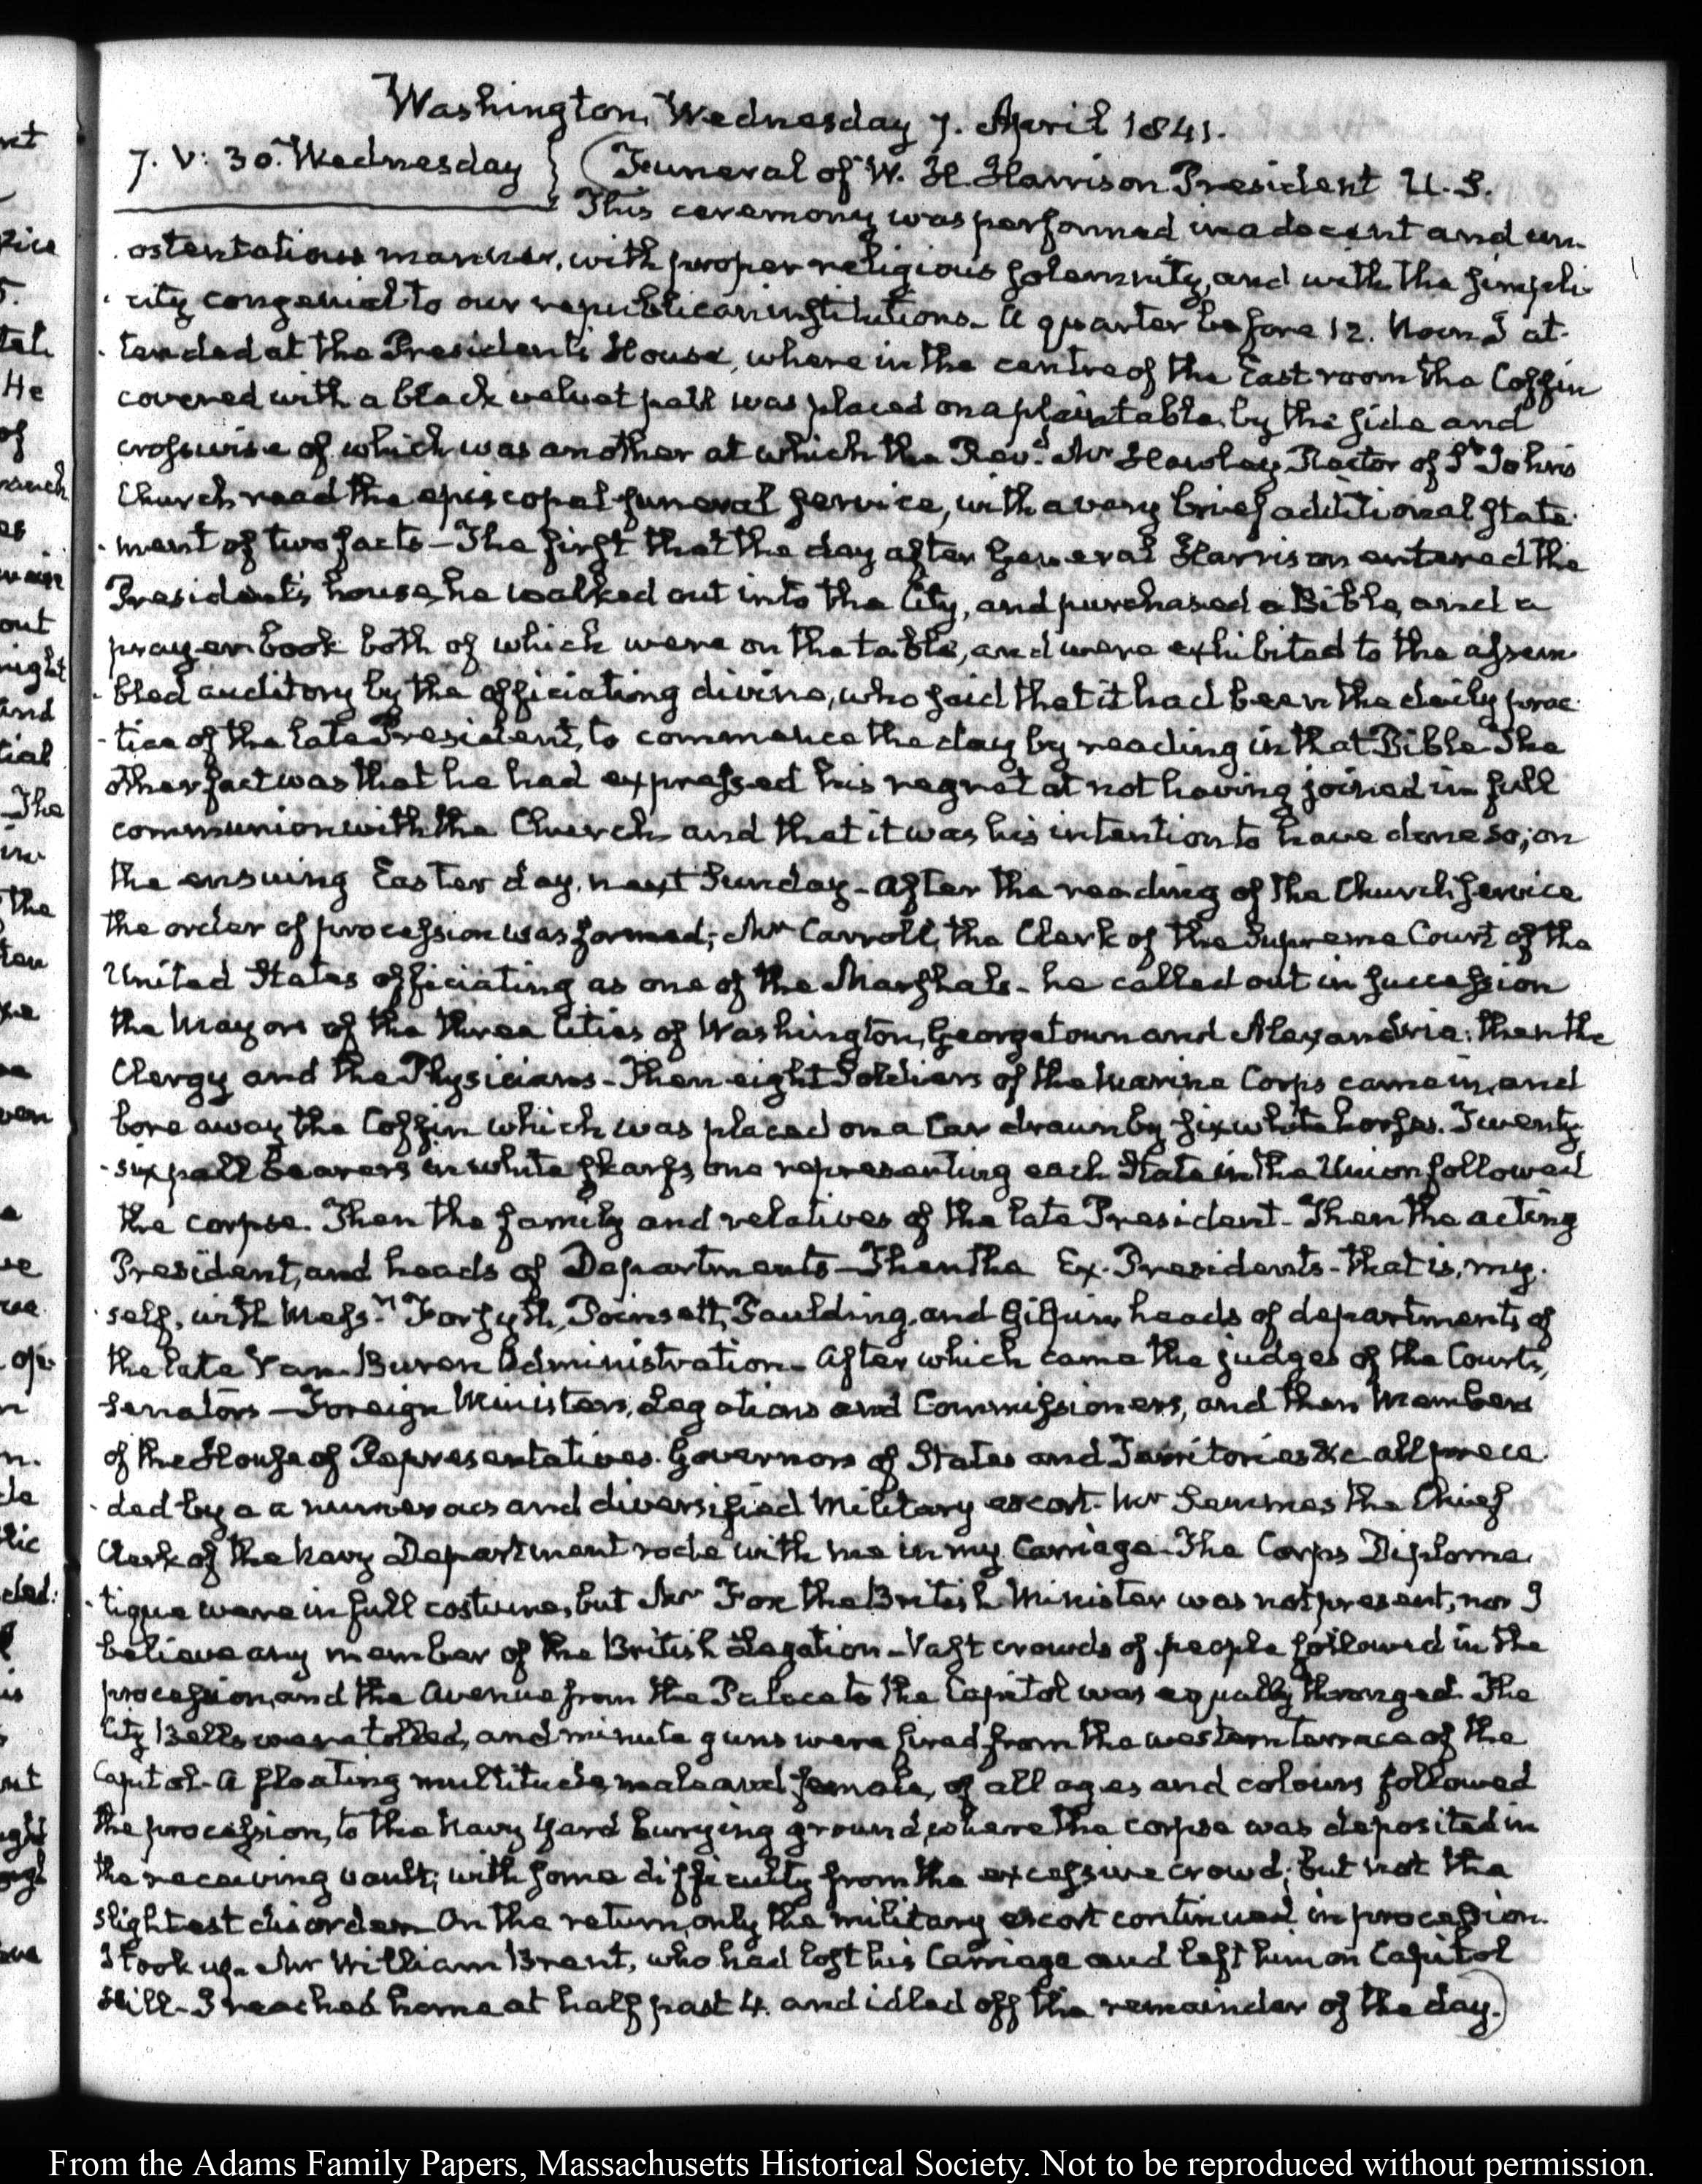 Washington, Wednesday 7. April 1841.
7. V: 30. Wednesday } (Funeral of W. H. Harrison President U. S.
This ceremony was performed in a decent and un-
ostentatious manner, with proper religious solemnity, and with the simpli-
-city congenial to our republican institutions. A quarter before 12. Noon I at-
-tended at the President's House, where in the centre of the East room the Coffin
covered with a black velvet pall was placed on a plain table, by the side and
crosswise of which was another at which the Revd. Mr Hawley, Rector of St. Johns
Church read the episcopal funeral service, with a very brief additional State-
-ment of two facts—The first that the day after General Harrison entered the
President's house, he walked out into the City, and purchased a Bible, and a
prayer book both of which were on the table, and were exhibited to the assem-
-bled auditory by the officiating divine, who said that it had been the daily prac-
-tice of the late President, to commence the day by reading in that Bible—The
other fact was that he had expressed his regret at not having joined in full
communion with the Church and that it was his intention to have done so, on
the ensuing Easter day, next Sunday—After the reading of the Church service
the order of procession was formed; Mr Carroll, the Clerk of the Supreme Court of the
United States officiating as one of the Marshals—he called out in succession
the Mayors of the three Cities of Washington, Georgetown and Alexandria: then the
Clergy and the Physicians—Then eight Soldiers of the Marine Corps came in, and
bore away the Coffin which was placed on a Car drawn by six white horses. Twenty
-six pall bearers in white skarfs, one representing each State in the Union followed
the corpse. Then the family and relatives of the late President—Then the acting
President, and heads of Departments—Then the Ex-Presidents—that is, my-
-self, with Messrs. Forsyth, Poinsett, Paulding, and Gilpin, heads of departments of
the late Van Buren Administration—After which came the judges of the Courts,
Senators—Foreign Ministers, Legations and Commissioners, and then Members
of the House of Representatives. Governors of States and Territories &c all prece-
-ded by a a numerous and diversified Military escort. Mr Semmes the Chief
Clerk of the Navy Department rode with me in my Carriage—The Corps Diploma-
-tique were in full costume, but Mr Fox the British Minister was not present, nor I
believe any member of the British Legation—Vast crowds of people followed in the
procession, and the Avenue from the Palace to the Capitol was equally thronged. The
City Bells were tolled, and minute guns were fired from the western terrace of the
Capitol—A floating multitude, male and female, of all ages and colours followed
the procession, to the Navy Yard burying ground, where the corpse was deposited in
the receiving vault; with some difficulty from the excessive crowd; but not the
slightest disorder—On the return, only the military escort continued in procession.
I took up Mr William Brent, who had lost his Carriage and left him on Capitol
Hill—I reached home at half past 4. and idled off the remainder of the day.)
From the Adams Family Papers, Massachusetts Historical Society. Not to be reproduced without permission.